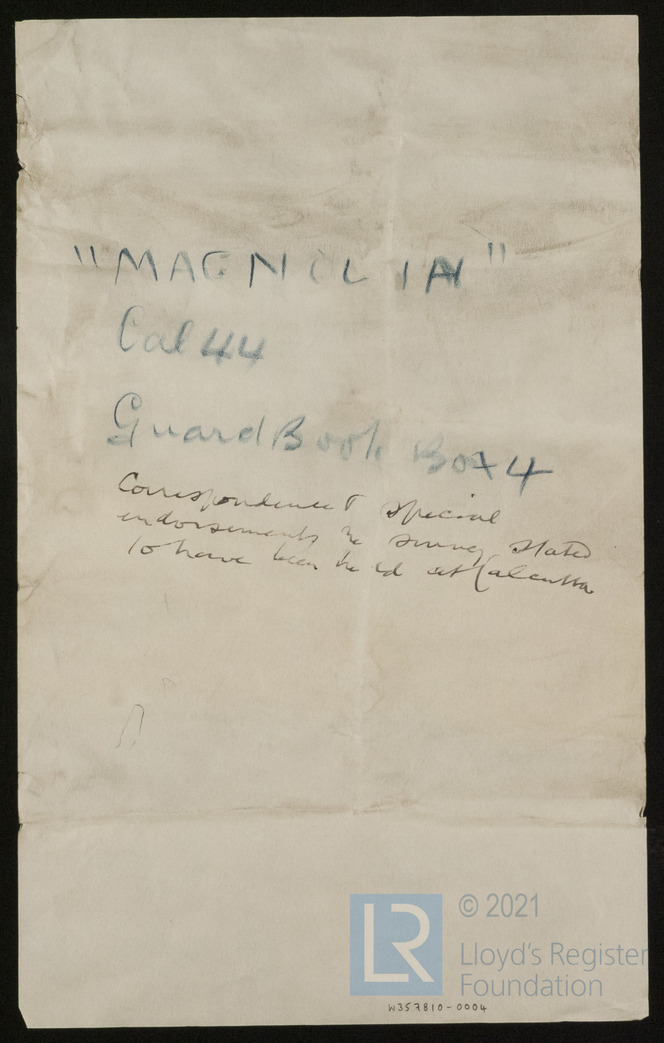 "MAGNOLIA"
Cal 44
Guard Book Box 4
Correspondence & special
endorsements re survey stated
to have been held at Calcutta
LR
© 2021
Lloyd's Register
Foundation
W357810-0004